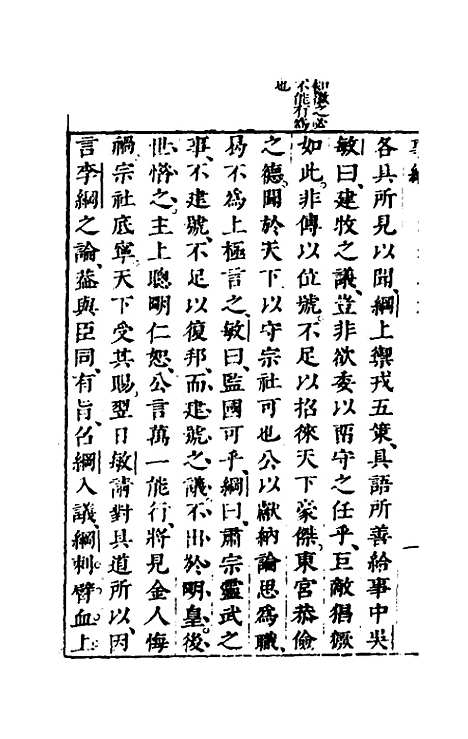 知徽之必
不能有為
也
各具所見以聞綱上禦戎五策具語所善給事中吳
敏曰建牧之議豈非欲委以留守之任乎巨敵猖獗
如此非傳以位號不足以招徠天下豪傑東宮恭儉
之德聞於天下以守宗社可也公以獻納論思為職
曷不為上極言之敏曰監國可乎綱曰肅宗靈武之
事不建號不足以復邦而建號之議不出於明皇後
世惜之主上聰明仁恕公言萬一能行將見金人悔
禍宗社底寧天下受其賜翌日敏請對具道所以因
言李綱之論葢與臣同有旨召綱入議綱刺臂血上